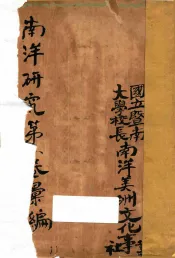 國立暨南
大學校長
南洋美洲文化事
社
南洋研究第
卷彙編